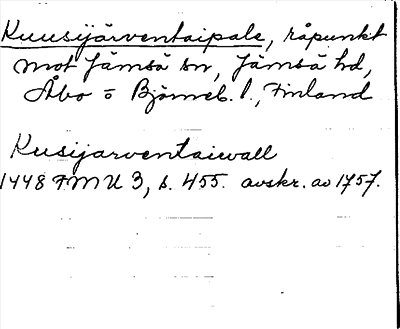 Kuusijärventaipale, råpunkt
mot Jämsä sn, Jämsä hd,
Åbo o Björneb. l., Finland
Kusijarventaiwall
1448 FMU 3, s. 455. avskr. av 1757.